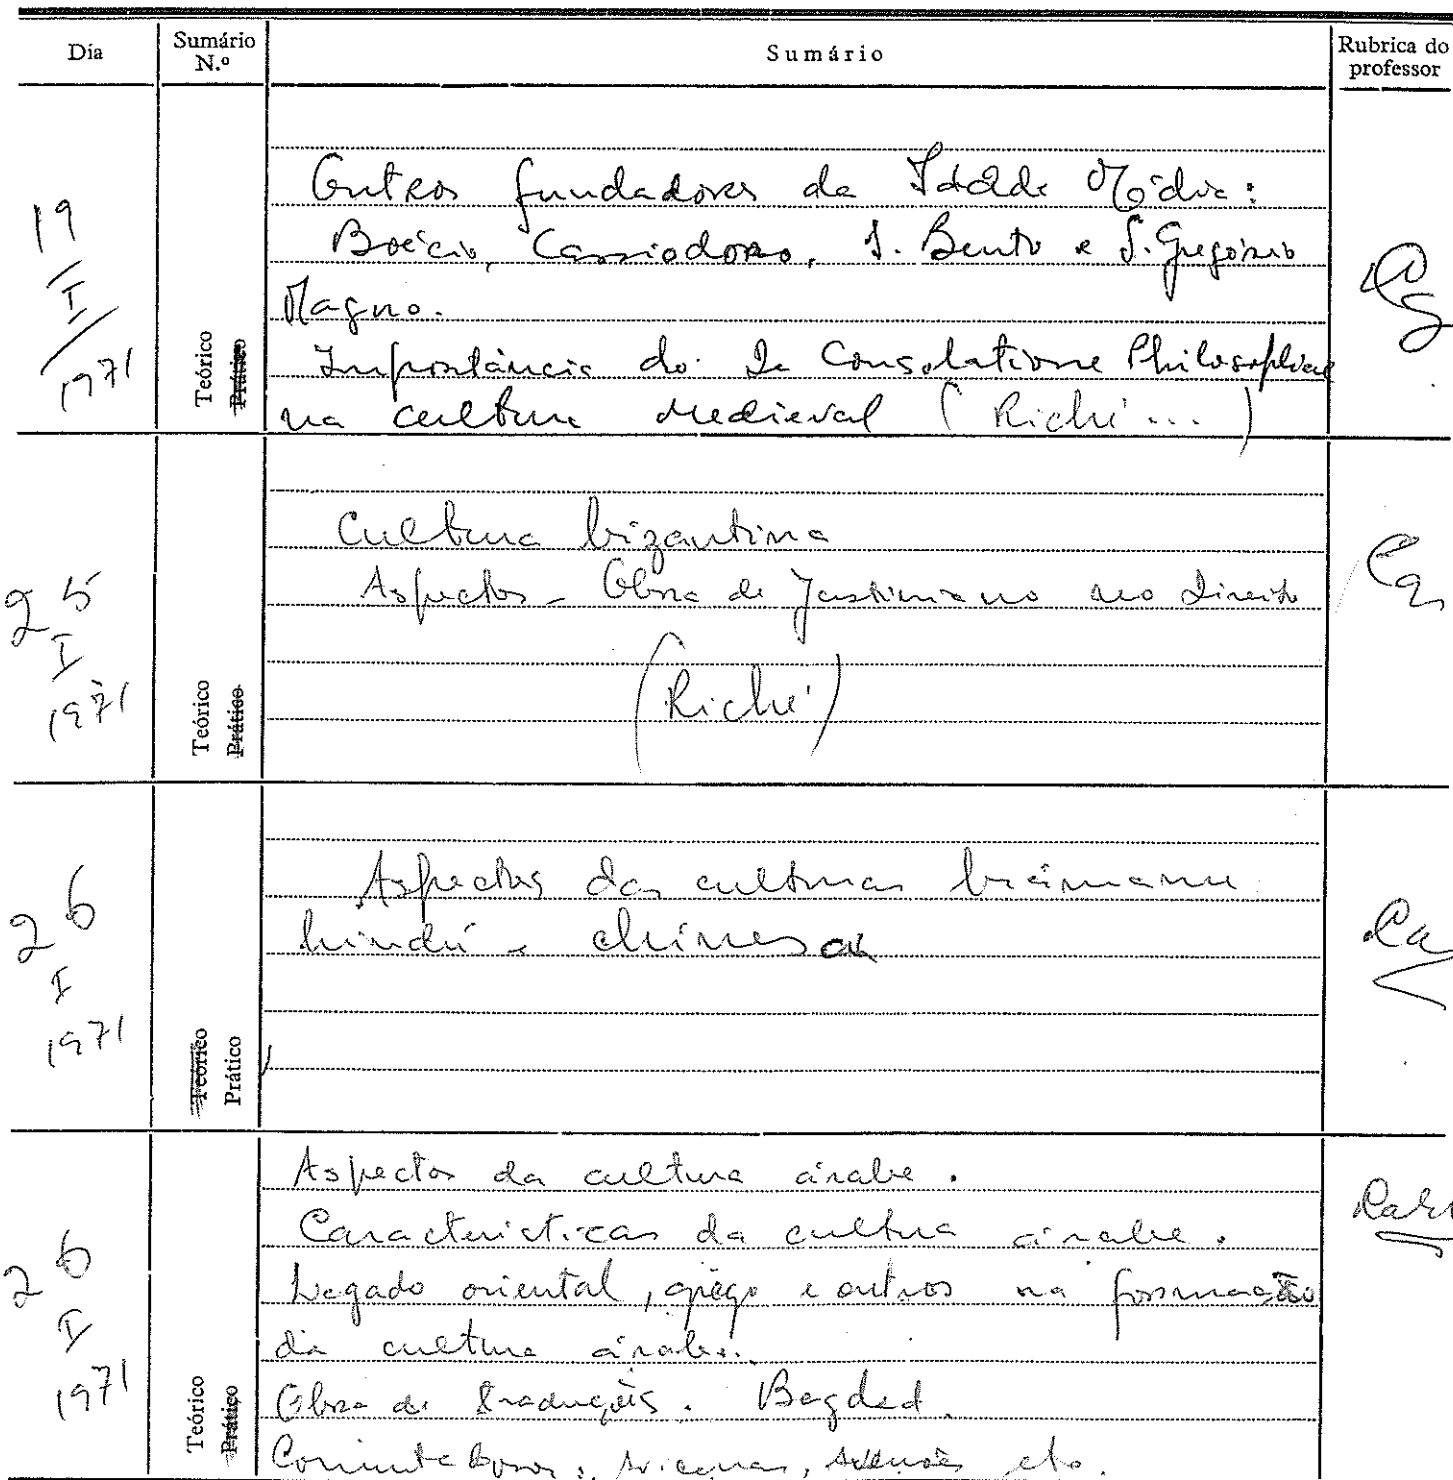 Dia
Sumário N.º
Sumário
Rubrica do professor
19
I
1971
Teórico
Prático
Outros fundadores da Idade Média:
Boécio, Cassiodoro, S. Bento e S. Gregório
Magno.
Importância do De Consolatione Philosophiae
na cultura medieval (Riché ...)
25
I
1971
Teórico
Prático
Cultura bizantina
Aspectos - Obra de Justiniano no Direito
(Riché)
26
I
1971
Teórico
Prático
Aspectos das culturas
hindú - chinesa
26
I
1971
Teórico
Prático
Aspectos da cultura árabe.
Características da cultura árabe.
Legado oriental, grego e outros na formação
da cultura árabe.
Obra de traduções. Bagdad.
Comentadores: Avicenas, etc.